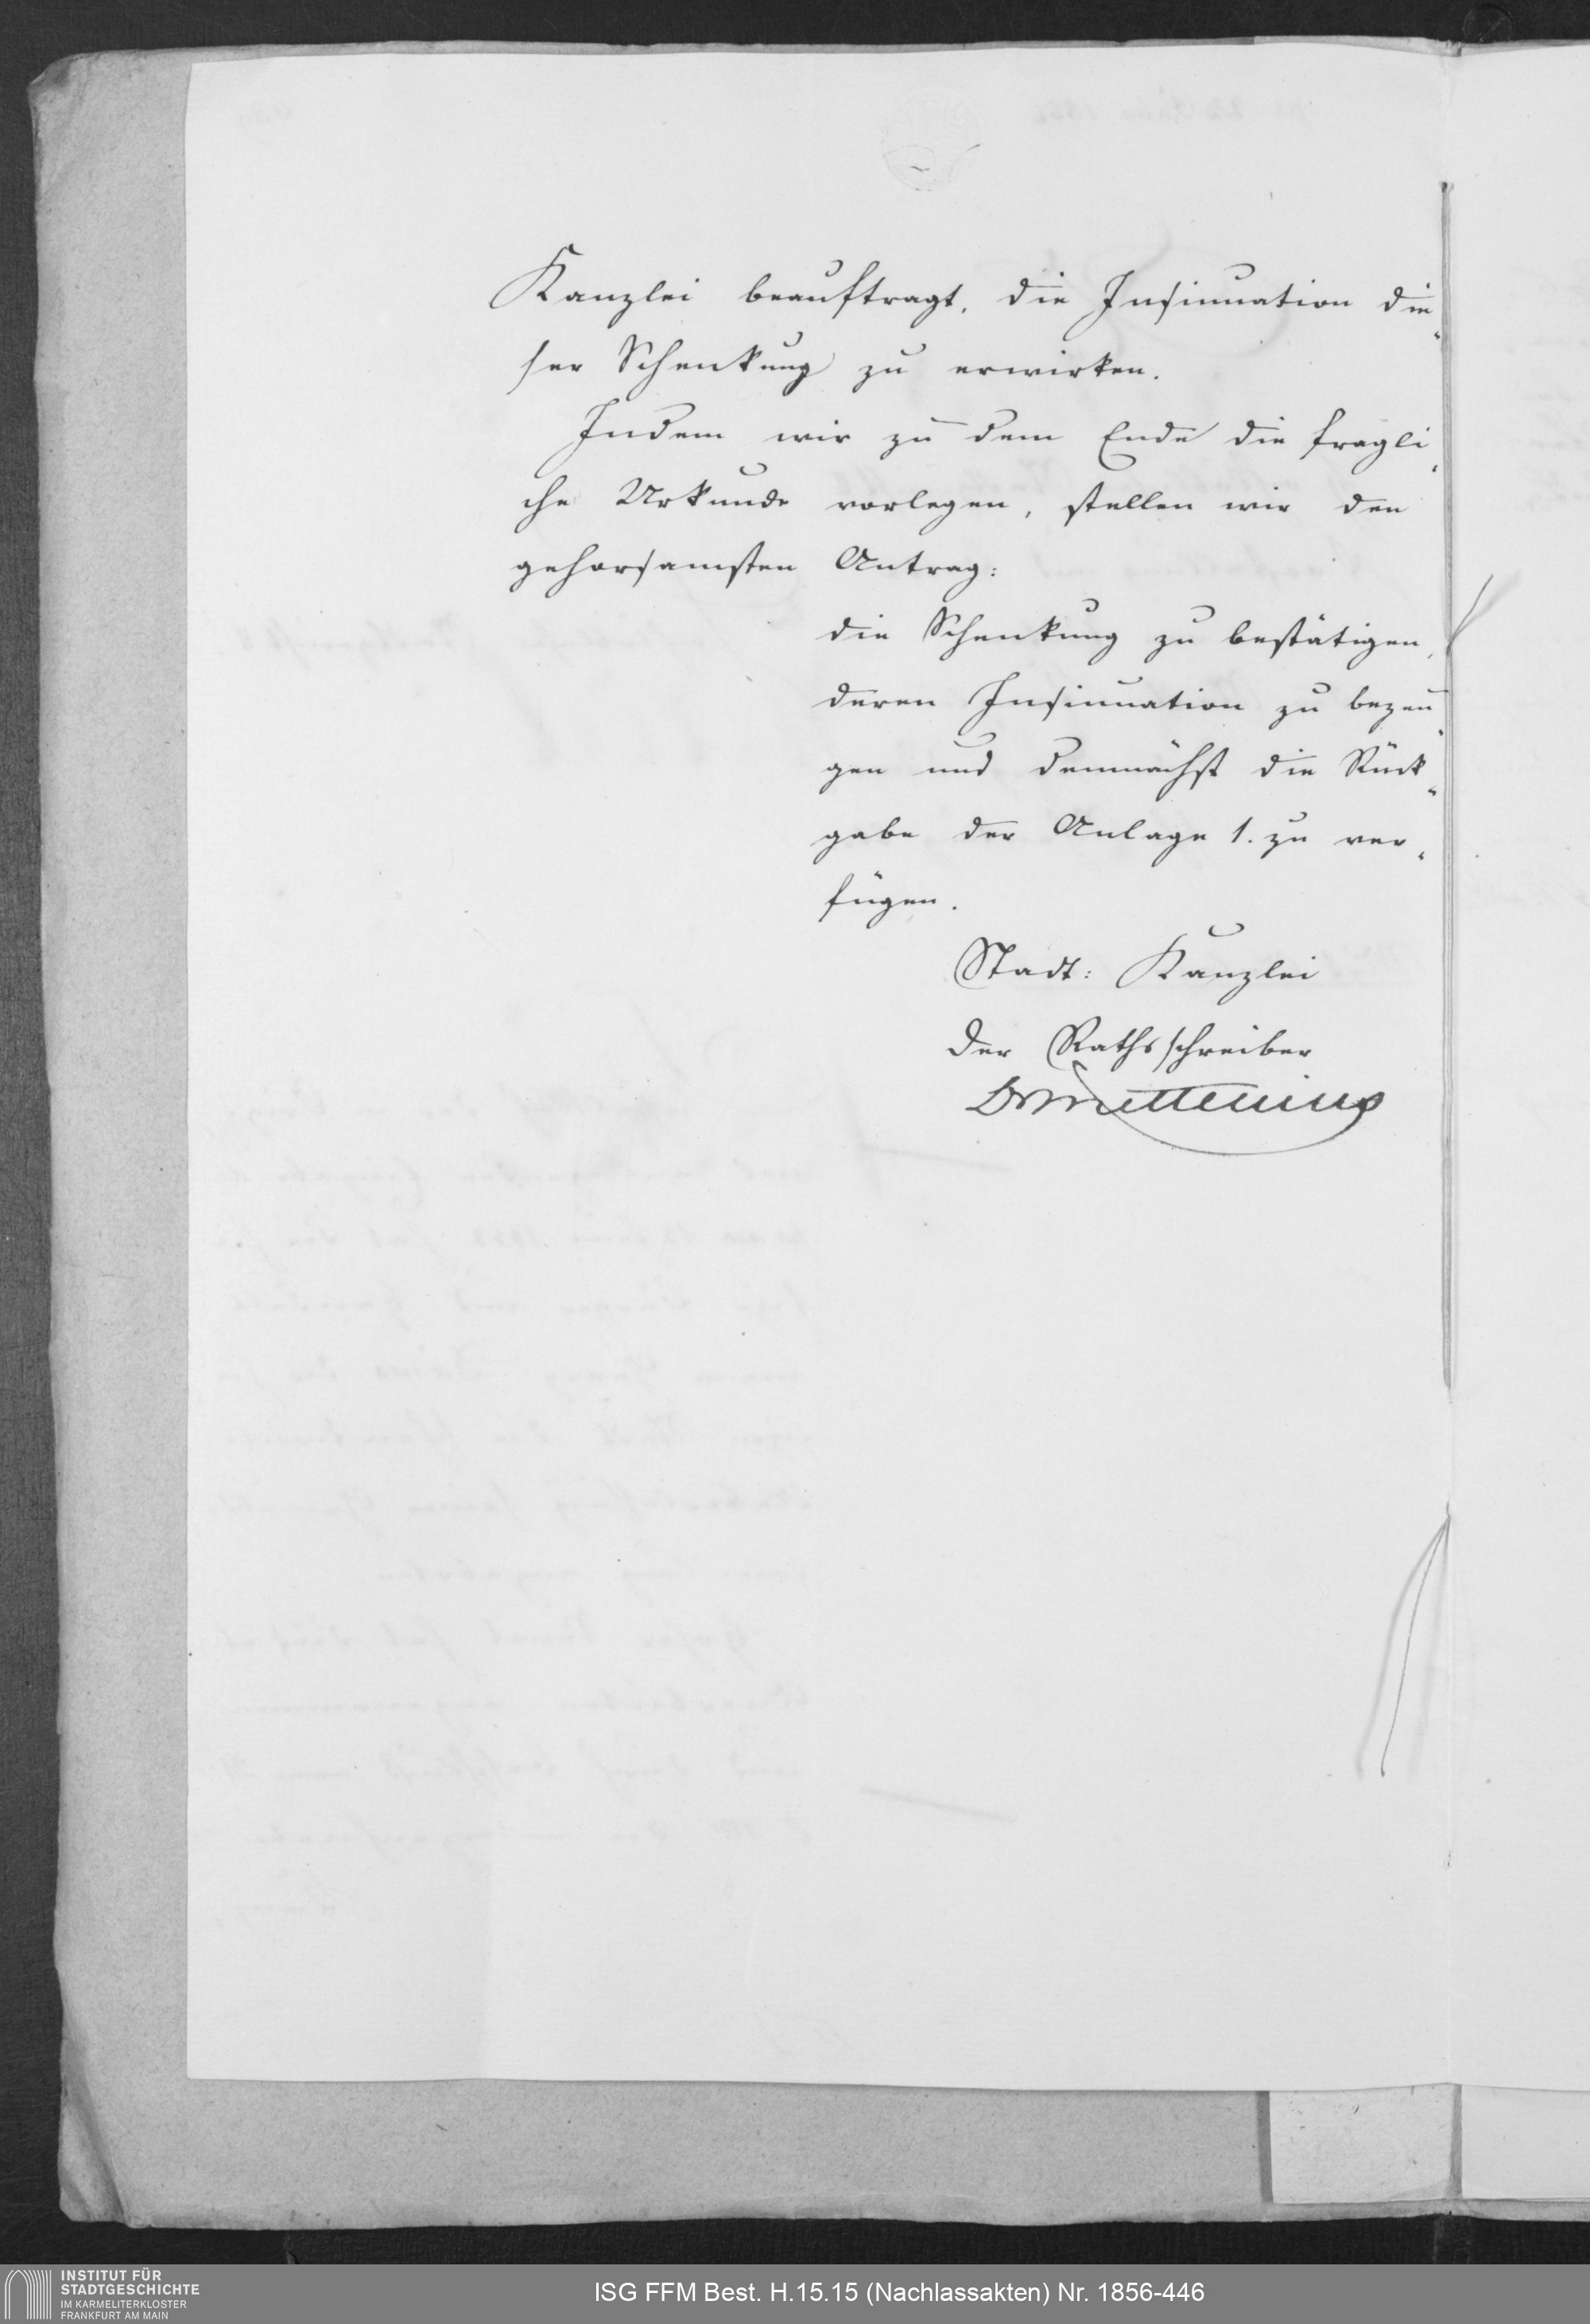 Kanzlei beauftragt, die Insinuation die-
ser Schenkung zu erwirken.
Indem wir zu dem Ende die fragli-
che Urkunde vorlegen, stellen wir den
gehorsamsten Antrag:
die Schenkung zu bestätigen,
deren Insinuation zu bezeu-
gen und demnächst die Rück-
gabe der Anlage 1. zu ver-
fügen.
Stadt: Kanzlei
Der Rathsschreiber
Dr Mettenius
INSTITUT FÜR
STADTGESCHICHTE
IM KARMELITERKLOSTER
FRANKFURT AM MAIN
ISG FFM Best. H.15.15 (Nachlassakten) Nr. 1856-446